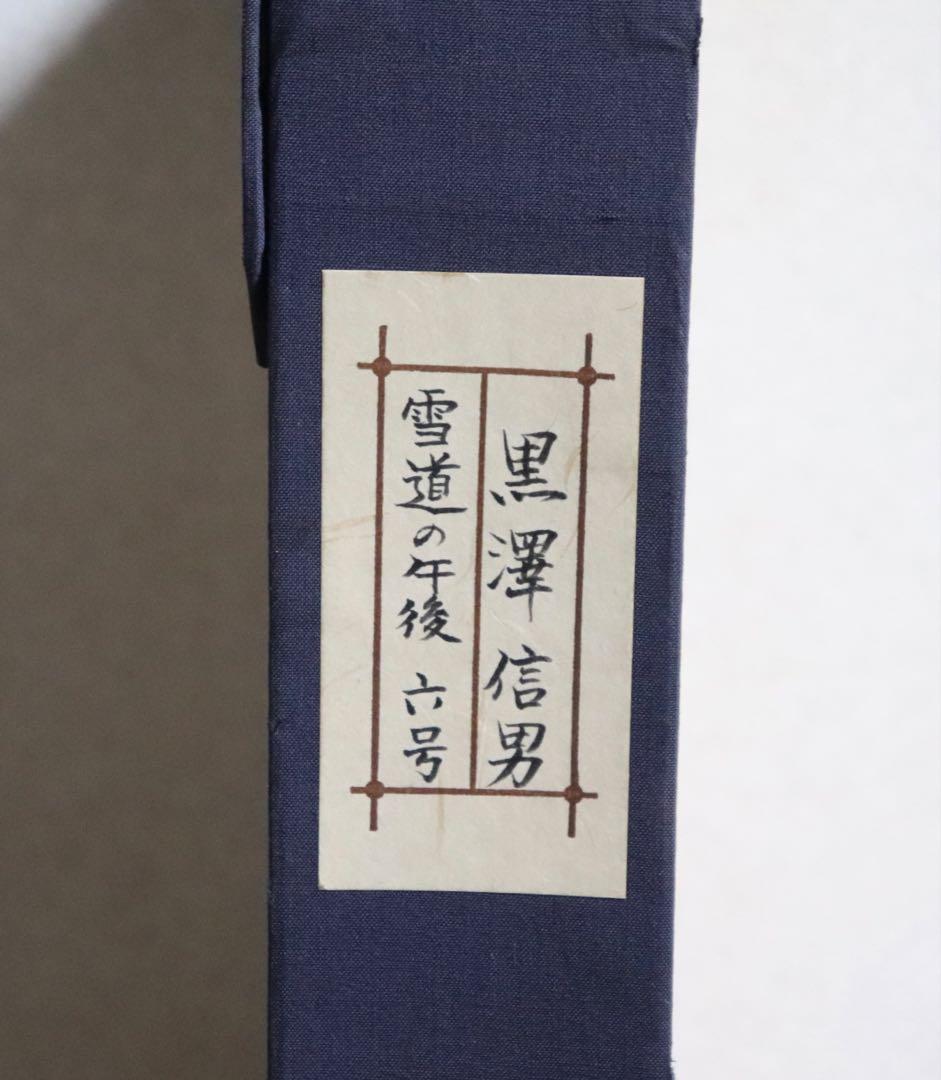 黒澤信男
雪道の午後 六号